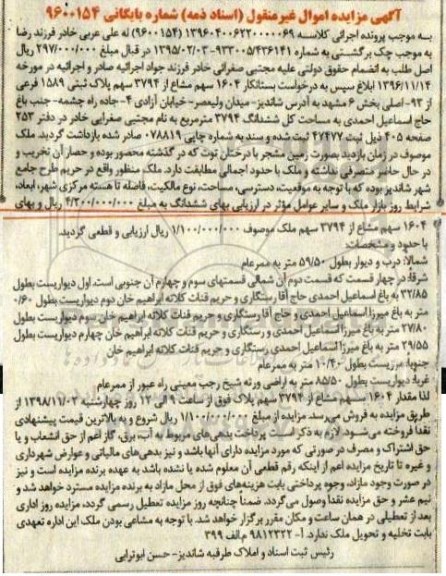 آگهی مزایده اموال غیرمنقول (اسناد ذمه) شماره بایگانی ۹۶۰۰۱۵۴
به موجب پرونده اجرائی کلاسه ۱۳۹۶۰۴۰۰۶۲۲۰۰۰۰۶۹ (۹۶۰۰۱۵۴) له علی عربی خادر فرزند رضا
به موجب چک برگشتی به شماره ۹۳۰۰/۵۴۳۶۱۴۱-۱۳۹۵/۰۲/۰۳ در قبال مبلغ ۲۹۷/۰۰۰/۰۰۰ ریال
اصل طلب به انضمام حقوق دولتی علیه مجتبی صفرائی خادر فرزند جواد اجرائیه صادر و اجرائیه در مورخه
۱۳۹۶/۱۱/۱۴ ابلاغ سپس به درخواست بستانکار ۱۶۰۴ سهم مشاع از ۳۷۹۴ سهم پلاک ثبتی ۱۵۸۹ فرعی
از ۹۳- اصلی بخش ۶ مشهد به آدرس شاندیز- میدان ولیعصر- خیابان آزادی ۴- جاده راه چشمه- جنب باغ
حاج اسماعیل احمدی به مساحت کل ششدانگ ۳۷۹۴ مترمربع به نام مجتبی صفرایی خادر در دفتر ۲۵۳
صفحه ۴۰۵ ذیل ثبت ۴۷۴۷۷ ثبت شده و سند به شماره چاپی ۰۷۸۸۱۹ صادر شده بازداشت گردید. ملک
موصوف در زمان بازدید بصورت زمین مشجر با درختان توت که در گذشته محصور بوده و حصار آن تخریب و
در حال حاضر متصرفی نداشته و ملک با حدود اجمالی مطابقت دارد. ملک منظور واقع در حریم طرح جامع
شهر شاندیز بوده که با توجه به موقعیت، دسترسی، مساحت، نوع مالکیت، فاصله تا هسته مرکزی شهر، ابعاد،
شرایط روز بازار ملک و سایر عوامل مؤثر در ارزیابی بهای ششدانگ به مبلغ ۴/۲۰۰/۰۰۰/۰۰۰ ریال و بهای
۱۶۰۴ سهم مشاع از ۳۷۹۴ سهم ملک موصوف ۱/۱۰۰/۰۰۰/۰۰۰ ریال ارزیابی و قطعی گردید.
با حدود و مشخصات:
شمالا: درب و دیوار بطول ۵۹/۵۰ متر به ممرعام
شرقاً: در چهار قسمت که قسمت دوم آن شمالی قسمتهای سوم و چهارم آن جنوبی است. اول دیواریست بطول
۳۲/۸۵ به باغ اسماعیل احمدی و حاج آقا رستگاری و حریم قنات کلاته ابراهیم خان دوم دیواریست بطول ۰/۶۰
متر به باغ میرزا اسماعیل احمدی و حاج آقا رستگاری و حریم قنات کلاته ابراهیم خان سوم دیواریست بطول
۲۷/۸۰ متر به باغ میرزا اسماعیل احمدی و رستگاری و حریم قنات کلاته ابراهیم خان چهارم دیواریست بطول
۲۹/۵۵ متر به باغ میرزا اسماعیل احمدی رستگاری و حریم قنات کلاته ابراهیم خان
جنوبا: مرزیست بطول ۱۰/۴۰ متر به ممرعام
غربا: دیواریست بطول ۸۵/۵۰ متر به اراضی ورثه شیخ رجب معینی راه عبور از ممرعام
لذا مقدار ۱۶۰۴ سهم مشاع از ۳۷۹۴ سهم پلاک فوق از ساعت ۹ الی ۱۲ روز چهارشنبه ۱۳۹۸/۱۱/۰۲ از
طریق مزایده به فروش می‌رسد. مزایده از مبلغ ۱/۱۰۰/۰۰۰/۰۰۰ ریال شروع و به بالاترین قیمت پیشنهادی
نقدا فروخته می‌شود. لازم به ذکر است پرداخت بدهی‌های مربوط به آب، برق، گاز اعم از حق انشعاب و یا
حق اشتراک و مصرف در صورتی که مورد مزایده دارای آنها باشد و نیز بدهی‌های مالیاتی و عوارض شهرداری
و غیره تا تاریخ مزایده اعم از اینکه رقم قطعی آن معلوم شده یا نشده باشد به عهده برنده مزایده است و نیز
در صورت وجود مازاد، وجوه پرداختی بابت هزینه‌های فوق از محل مازاد به برنده مزایده مسترد خواهد شد و
نیم عشر و حق مزایده نقدا وصول می‌گردد. ضمناً چنانچه روز مزایده تعطیل رسمی گردد، مزایده روز اداری
بعد از تعطیلی در همان ساعت و مکان مقرر برگزار خواهد شد. با توجه به مشاعی بودن ملک این اداره تعهدی
بابت تخلیه و تحویل ملک ندارد. آ- ۹۸۱۲۳۲۲ م.الف ۳۹۹
رئیس ثبت اسناد و املاک طرقبه شاندیز- حسن ابوترابی